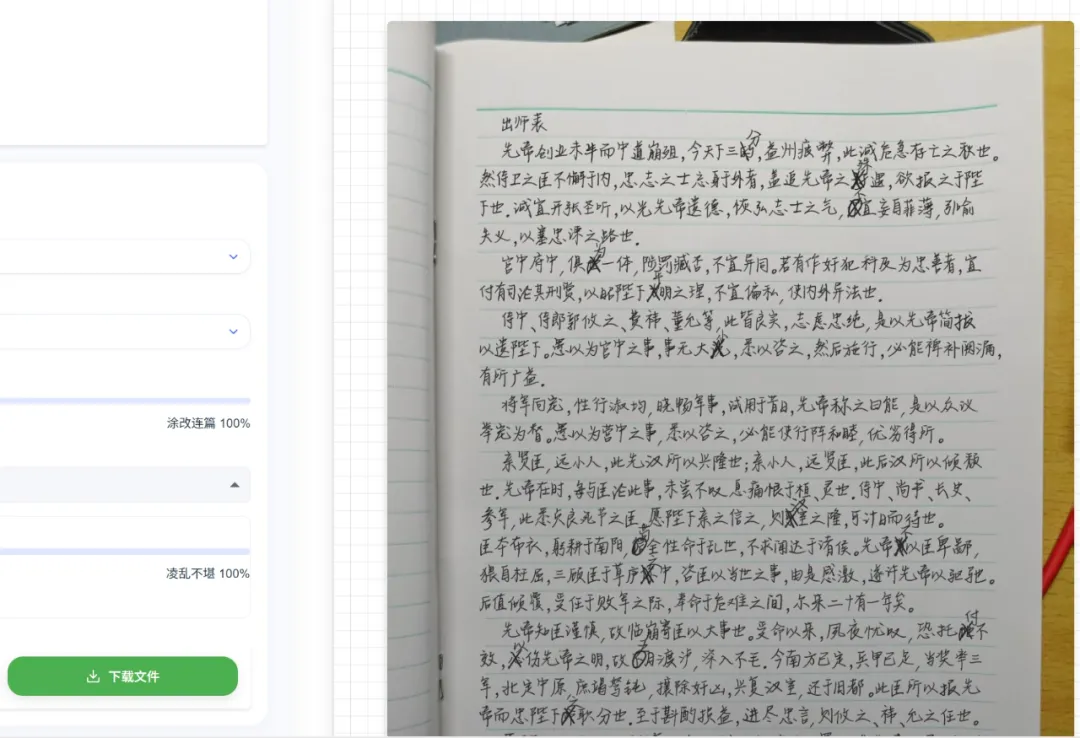 涂改连篇 100%
凌乱不堪 100%
下载文件
出师表
先帝创业未半而中道崩殂,今天下三分,益州疲弊,此诚危急存亡之秋也。
然侍卫之臣不懈于内,忠志之士忘身于外者,盖追先帝之殊遇,欲报之于陛
下也.诚宜开张圣听,以光先帝遗德,恢弘志士之气,不宜妄自菲薄,引喻
失义,以塞忠谏之路也.
宫中府中,俱为一体,陟罚臧否,不宜异同.若有作奸犯科及为忠善者,宜
付有司论其刑赏,以昭陛下平明之理,不宜偏私,使内外异法也.
侍中、侍郎郭攸之、费祎、董允等,此皆良实,志虑忠纯,是以先帝简拔
以遗陛下。愚以为宫中之事,事无大小,悉以咨之,然后施行,必能裨补阙漏,
有所广益.
将军向宠,性行淑均,晓畅军事,试用于昔日,先帝称之曰能,是以众议
举宠为督.愚以为营中之事,悉以咨之,必能使行阵和睦,优劣得所。
亲贤臣,远小人,此先汉所以兴隆也;亲小人,远贤臣,此后汉所以倾颓
也.先帝在时,每与臣论此事,未尝不叹息痛恨于桓、灵也.侍中、尚书、长史、
参军,此悉贞良死节之臣,愿陛下亲之信之,则汉室之隆,可计日而待也。
臣本布衣,躬耕于南阳,苟全性命于乱世,不求闻达于诸侯.先帝不以臣卑鄙,
猥自枉屈,三顾臣于草庐之中,咨臣以当世之事,由是感激,遂许先帝以驱驰。
后值倾覆,受任于败军之际,奉命于危难之间,尔来二十有一年矣。
先帝知臣谨慎,故临崩寄臣以大事也。受命以来,夙夜忧叹,恐托付不
效,以伤先帝之明,故五月渡泸,深入不毛.今南方已定,兵甲已足,当奖率三
军,北定中原,庶竭驽钝,攘除奸凶,兴复汉室,还于旧都.此臣所以报先
帝而忠陛下之职分也.至于斟酌损益,进尽忠言,则攸之、祎、允之任也。